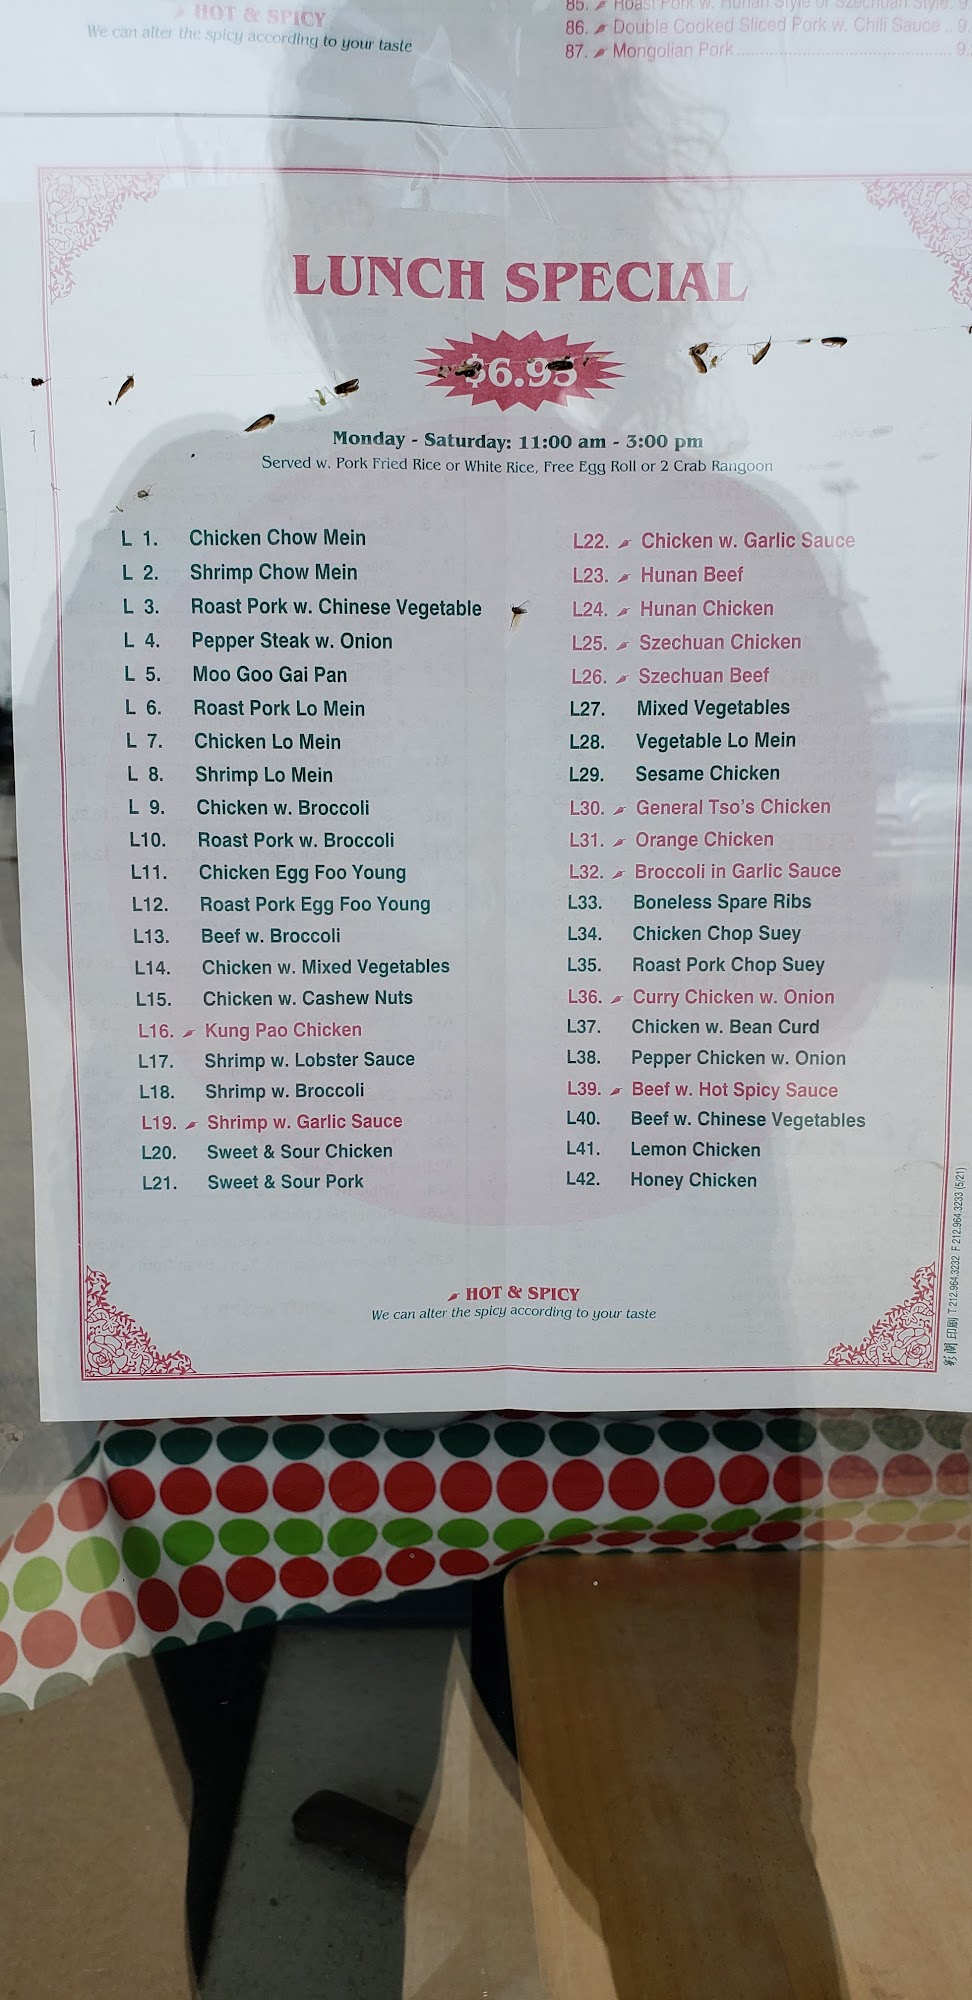 HOT & SPICY
We can alter the spicy according to your taste
85. Roast Pork w. Hunan Style or Szechuan Style.
86. Double Cooked Sliced Pork w. Chili Sauce ..
87. Mongolian Pork
LUNCH SPECIAL
$6.95
Monday - Saturday: 11:00 am - 3:00 pm
Served w. Pork Fried Rice or White Rice, Free Egg Roll or 2 Crab Rangoon
L 1. Chicken Chow Mein
L 2. Shrimp Chow Mein
L 3. Roast Pork w. Chinese Vegetable
L 4. Pepper Steak w. Onion
L 5. Moo Goo Gai Pan
L 6. Roast Pork Lo Mein
L 7. Chicken Lo Mein
L 8. Shrimp Lo Mein
L 9. Chicken w. Broccoli
L10. Roast Pork w. Broccoli
L11. Chicken Egg Foo Young
L12. Roast Pork Egg Foo Young
L13. Beef w. Broccoli
L14. Chicken w. Mixed Vegetables
L15. Chicken w. Cashew Nuts
L16. Kung Pao Chicken
L17. Shrimp w. Lobster Sauce
L18. Shrimp w. Broccoli
L19. Shrimp w. Garlic Sauce
L20. Sweet & Sour Chicken
L21. Sweet & Sour Pork
L22. Chicken w. Garlic Sauce
L23. Hunan Beef
L24. Hunan Chicken
L25. Szechuan Chicken
L26. Szechuan Beef
L27. Mixed Vegetables
L28. Vegetable Lo Mein
L29. Sesame Chicken
L30. General Tso's Chicken
L31. Orange Chicken
L32. Broccoli in Garlic Sauce
L33. Boneless Spare Ribs
L34. Chicken Chop Suey
L35. Roast Pork Chop Suey
L36. Curry Chicken w. Onion
L37. Chicken w. Bean Curd
L38. Pepper Chicken w. Onion
L39. Beef w. Hot Spicy Sauce
L40. Beef w. Chinese Vegetables
L41. Lemon Chicken
L42. Honey Chicken
HOT & SPICY
We can alter the spicy according to your taste
印刷 T 212.964.3232 F 212.964.3233 (5/21)